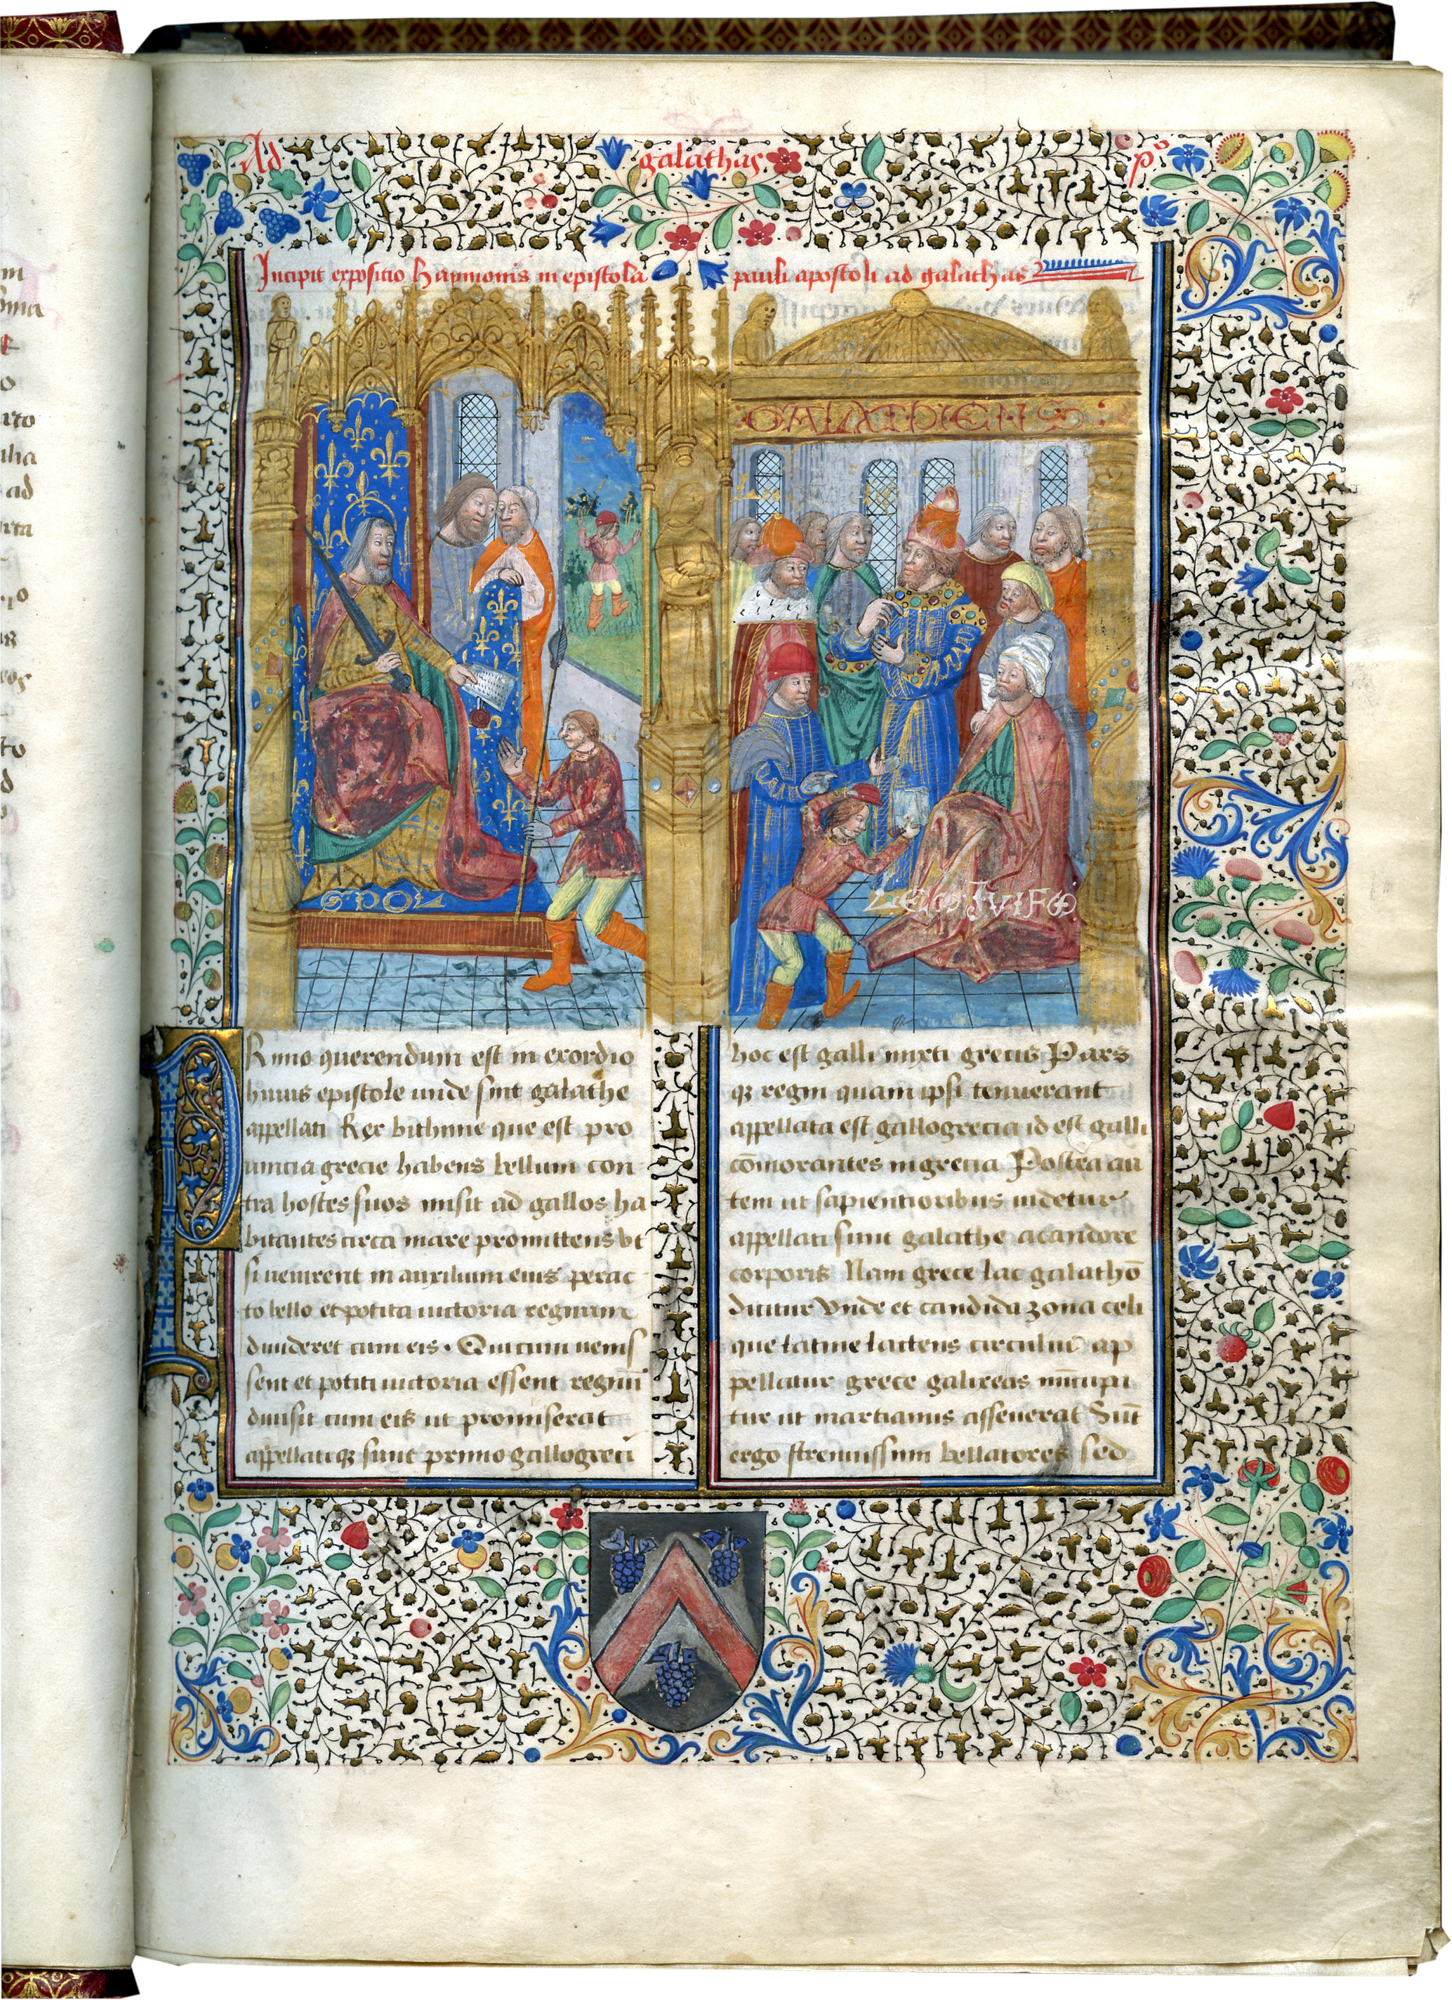 Ad galathas pº
Incipit expositio haymonis in epistolã pauli apostoli ad galathas
GALATHIENS
SPOL
LES JVIFS
Rimo querendum est in exordio
huius epistole unde sint galathe
appellati Rex bithinie que est pro
uincia grecie habens bellum con
tra hostes suos misit ad gallos ha
bitantes circa mare promittens vt
si uenirent in auxilium eius perac
to bello et potita uictoria regnum
diuideret cum eis. Qui cum uenis
sent et potiti uictoria essent regnũ
diuisit cum eis ut promiserat
appellatiqz sunt primo gallogreci
hoc est galli mixti grecis Pars
qz regni quam ipsi tenuerant
appellata est gallogrecia id est galli
cõmorantes in grecia Postea au
tem ut sapientioribus uidetur
appellati sunt galathe a candore
corporis Nam grece lac galathõ
dicitur Vnde et candida zona celi
que latine lacteus circulus ap
pellatur grece galixeas nũcupa
tur ut martianus asseuerat Sũt
ergo strenuissimi bellatores sed